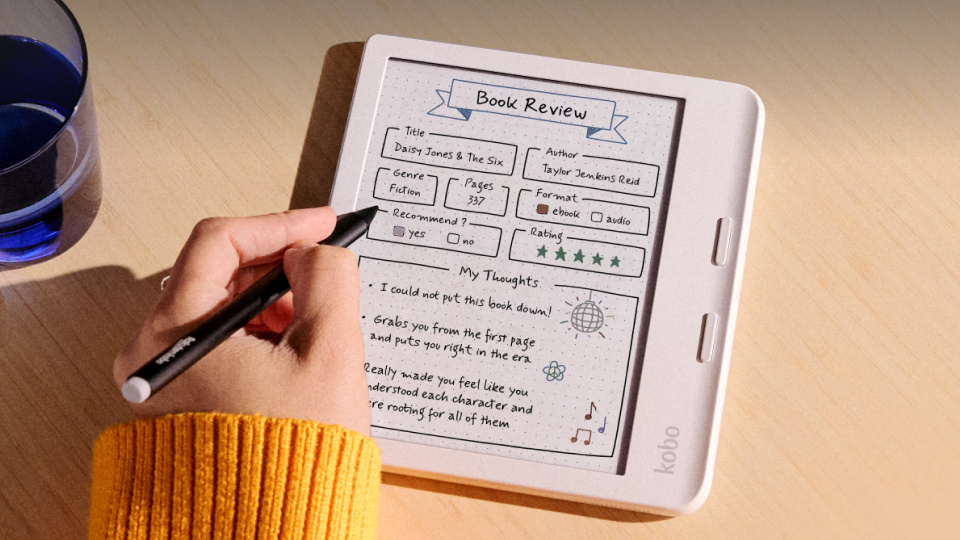 Book Review
Title
Daisy Jones & The Six
Author
Taylor Jenkins Reid
Genre
Fiction
Pages
337
Format
ebook audio
Recommend?
yes no
Rating
My Thoughts
• I could not put this book down!
• Grabs you from the first page
and puts you right in the era
Really made you feel like you
nderstood each character and
ere rooting for all of them
kobo